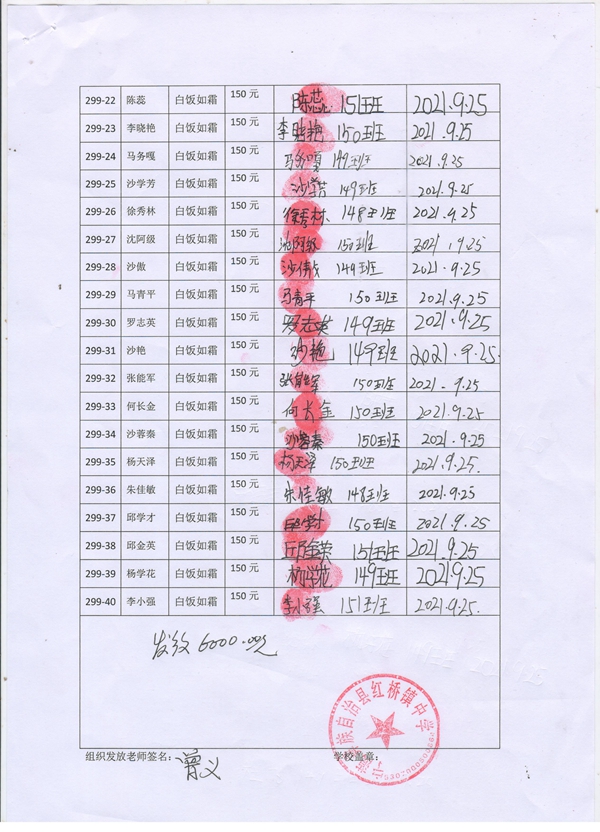 299-22 陈蕊 白饭如霜 150 元 陈蕊 151班 2021.9.25
299-23 李晓艳 白饭如霜 150 元 李晓艳 150班 2021.9.25
299-24 马务嘎 白饭如霜 150 元 马务嘎 149班 2021.9.25
299-25 沙学芳 白饭如霜 150 元 沙学芳 149班 2021.9.25
299-26 徐秀林 白饭如霜 150 元 徐秀林 148班 2021.9.25
299-27 沈阿级 白饭如霜 150 元 沈阿级 150班 2021.9.25
299-28 沙傲 白饭如霜 150 元 149班 2021.9.25
299-29 马青平 白饭如霜 150 元 马青平 150班 2021.9.25
299-30 罗志英 白饭如霜 150 元 罗志英 149班 2021.9.25
299-31 沙艳 白饭如霜 150 元 沙艳 149班 2021.9.25.
299-32 张能军 白饭如霜 150 元 张能军 150班 2021.9.25
299-33 何长金 白饭如霜 150 元 何长金 150班 2021.9.25
299-34 沙蓉秦 白饭如霜 150 元 沙蓉秦 150班 2021.9.25
299-35 杨天泽 白饭如霜 150 元 杨天泽 150班 2021.9.25.
299-36 朱佳敏 白饭如霜 150 元 朱佳敏 148班 2021.9.25
299-37 邱学才 白饭如霜 150 元 邱学才 150班 2021.9.25
299-38 邱金英 白饭如霜 150 元 邱金英 151班 2021.9.25
299-39 杨学花 白饭如霜 150 元 杨学花 149班 2021.9.25
299-40 李小强 白饭如霜 150 元 李小强 151班 2021.9.25.
发放6000.00元
族自治县红桥镇中学
组织发放老师签名: 曾义
学校盖章: